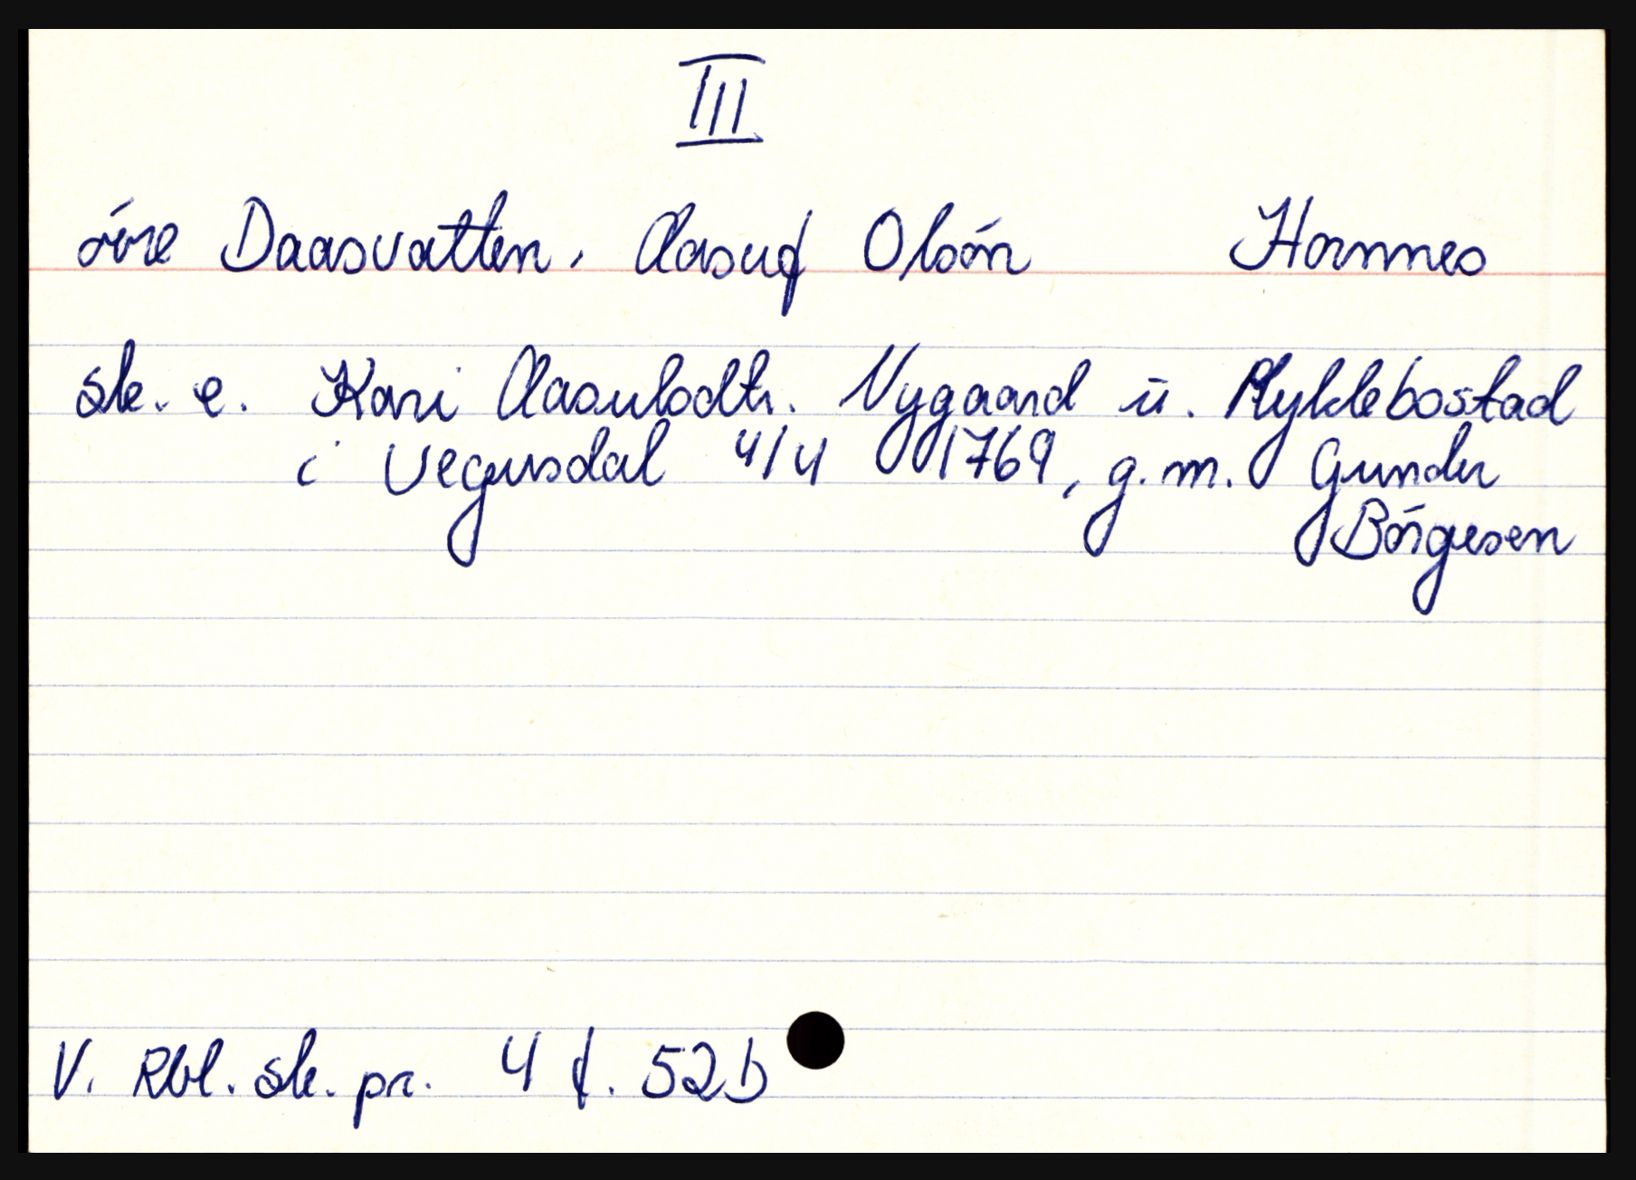 III
övre Daasvatten, Aasuf Olsón Hornnes
sk. e. Kari Aasulsdtr. Nygaard ū. Myklebostad
i Vegusdal 4/4 1769, g. m. Gunder
Börgesen
V. Rbl. sk. pr. 4 f. 52b